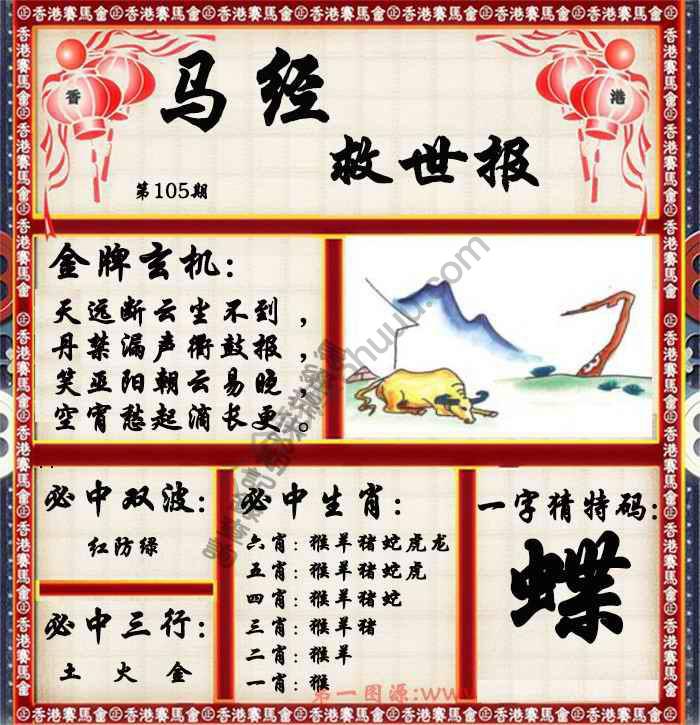 香港賽馬會
香 港
马经
救世报
第105期
金牌玄机：
天远断云尘不到，
丹禁漏声衝鼓报，
笑亚阳朝云易晓，
空宵愁起滴长更。
必中双波：
红防绿
必中三行：
土 火 金
必中生肖：
六肖：猴羊猪蛇虎龙
五肖：猴羊猪蛇虎
四肖：猴羊猪蛇
三肖：猴羊猪
二肖：猴羊
一肖：猴
一字猜特码：
蝶
第一图源:www